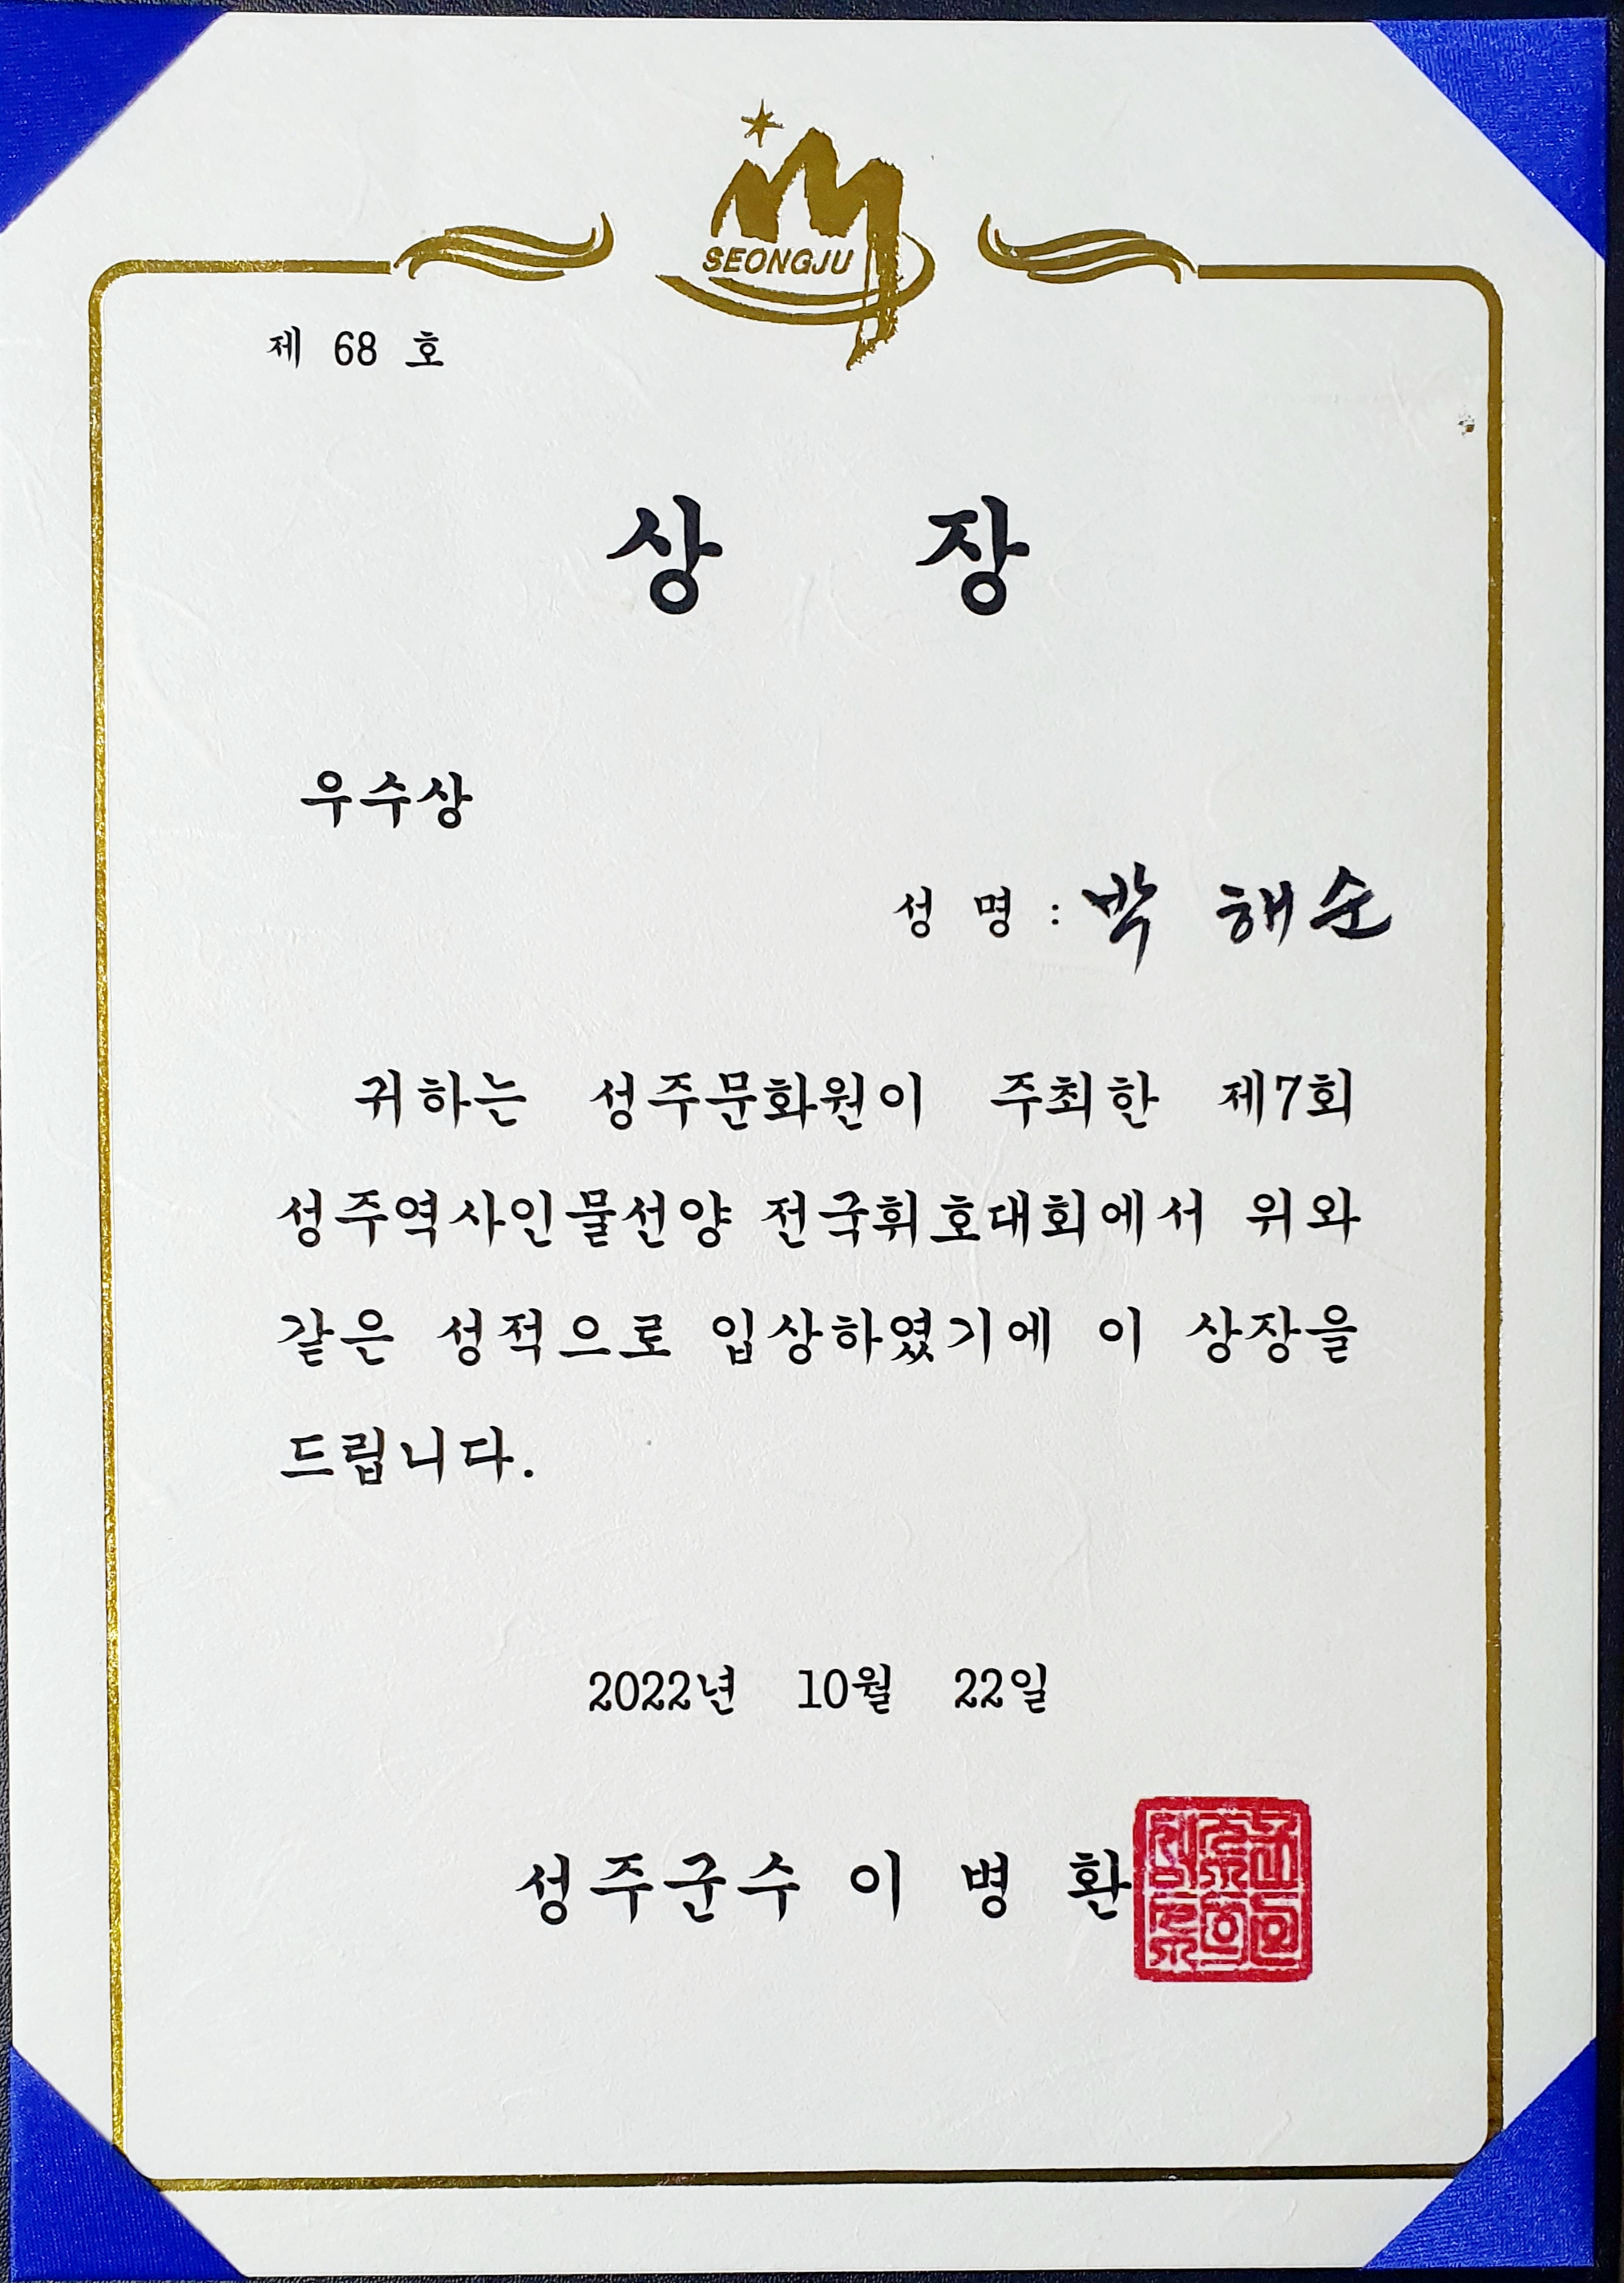 SEONGJU
제 68 호
상 장
우수상
성 명 : 박 해순
귀하는 성주문화원이 주최한 제7회
성주역사인물선양 전국휘호대회에서 위와
같은 성적으로 입상하였기에 이 상장을
드립니다.
2022년 10월 22일
성주군수 이 병 환